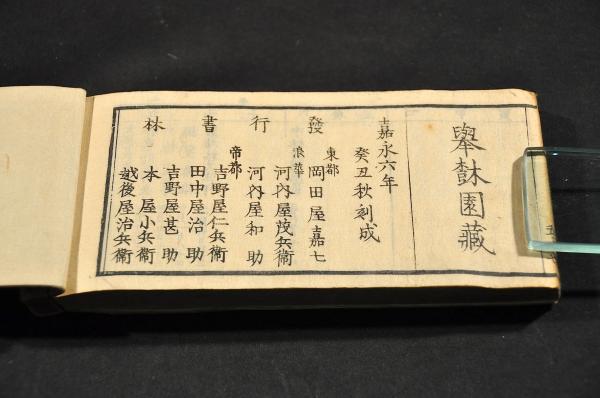 擧𣝣園藏
嘉永六年
癸丑秋刻成
發行書林
東都
岡田屋嘉七
浪華
河内屋茂兵衛
河内屋和助
帝都
吉野屋仁兵衛
田中屋治助
吉野屋甚助
本屋小兵衛
越後屋治兵衛